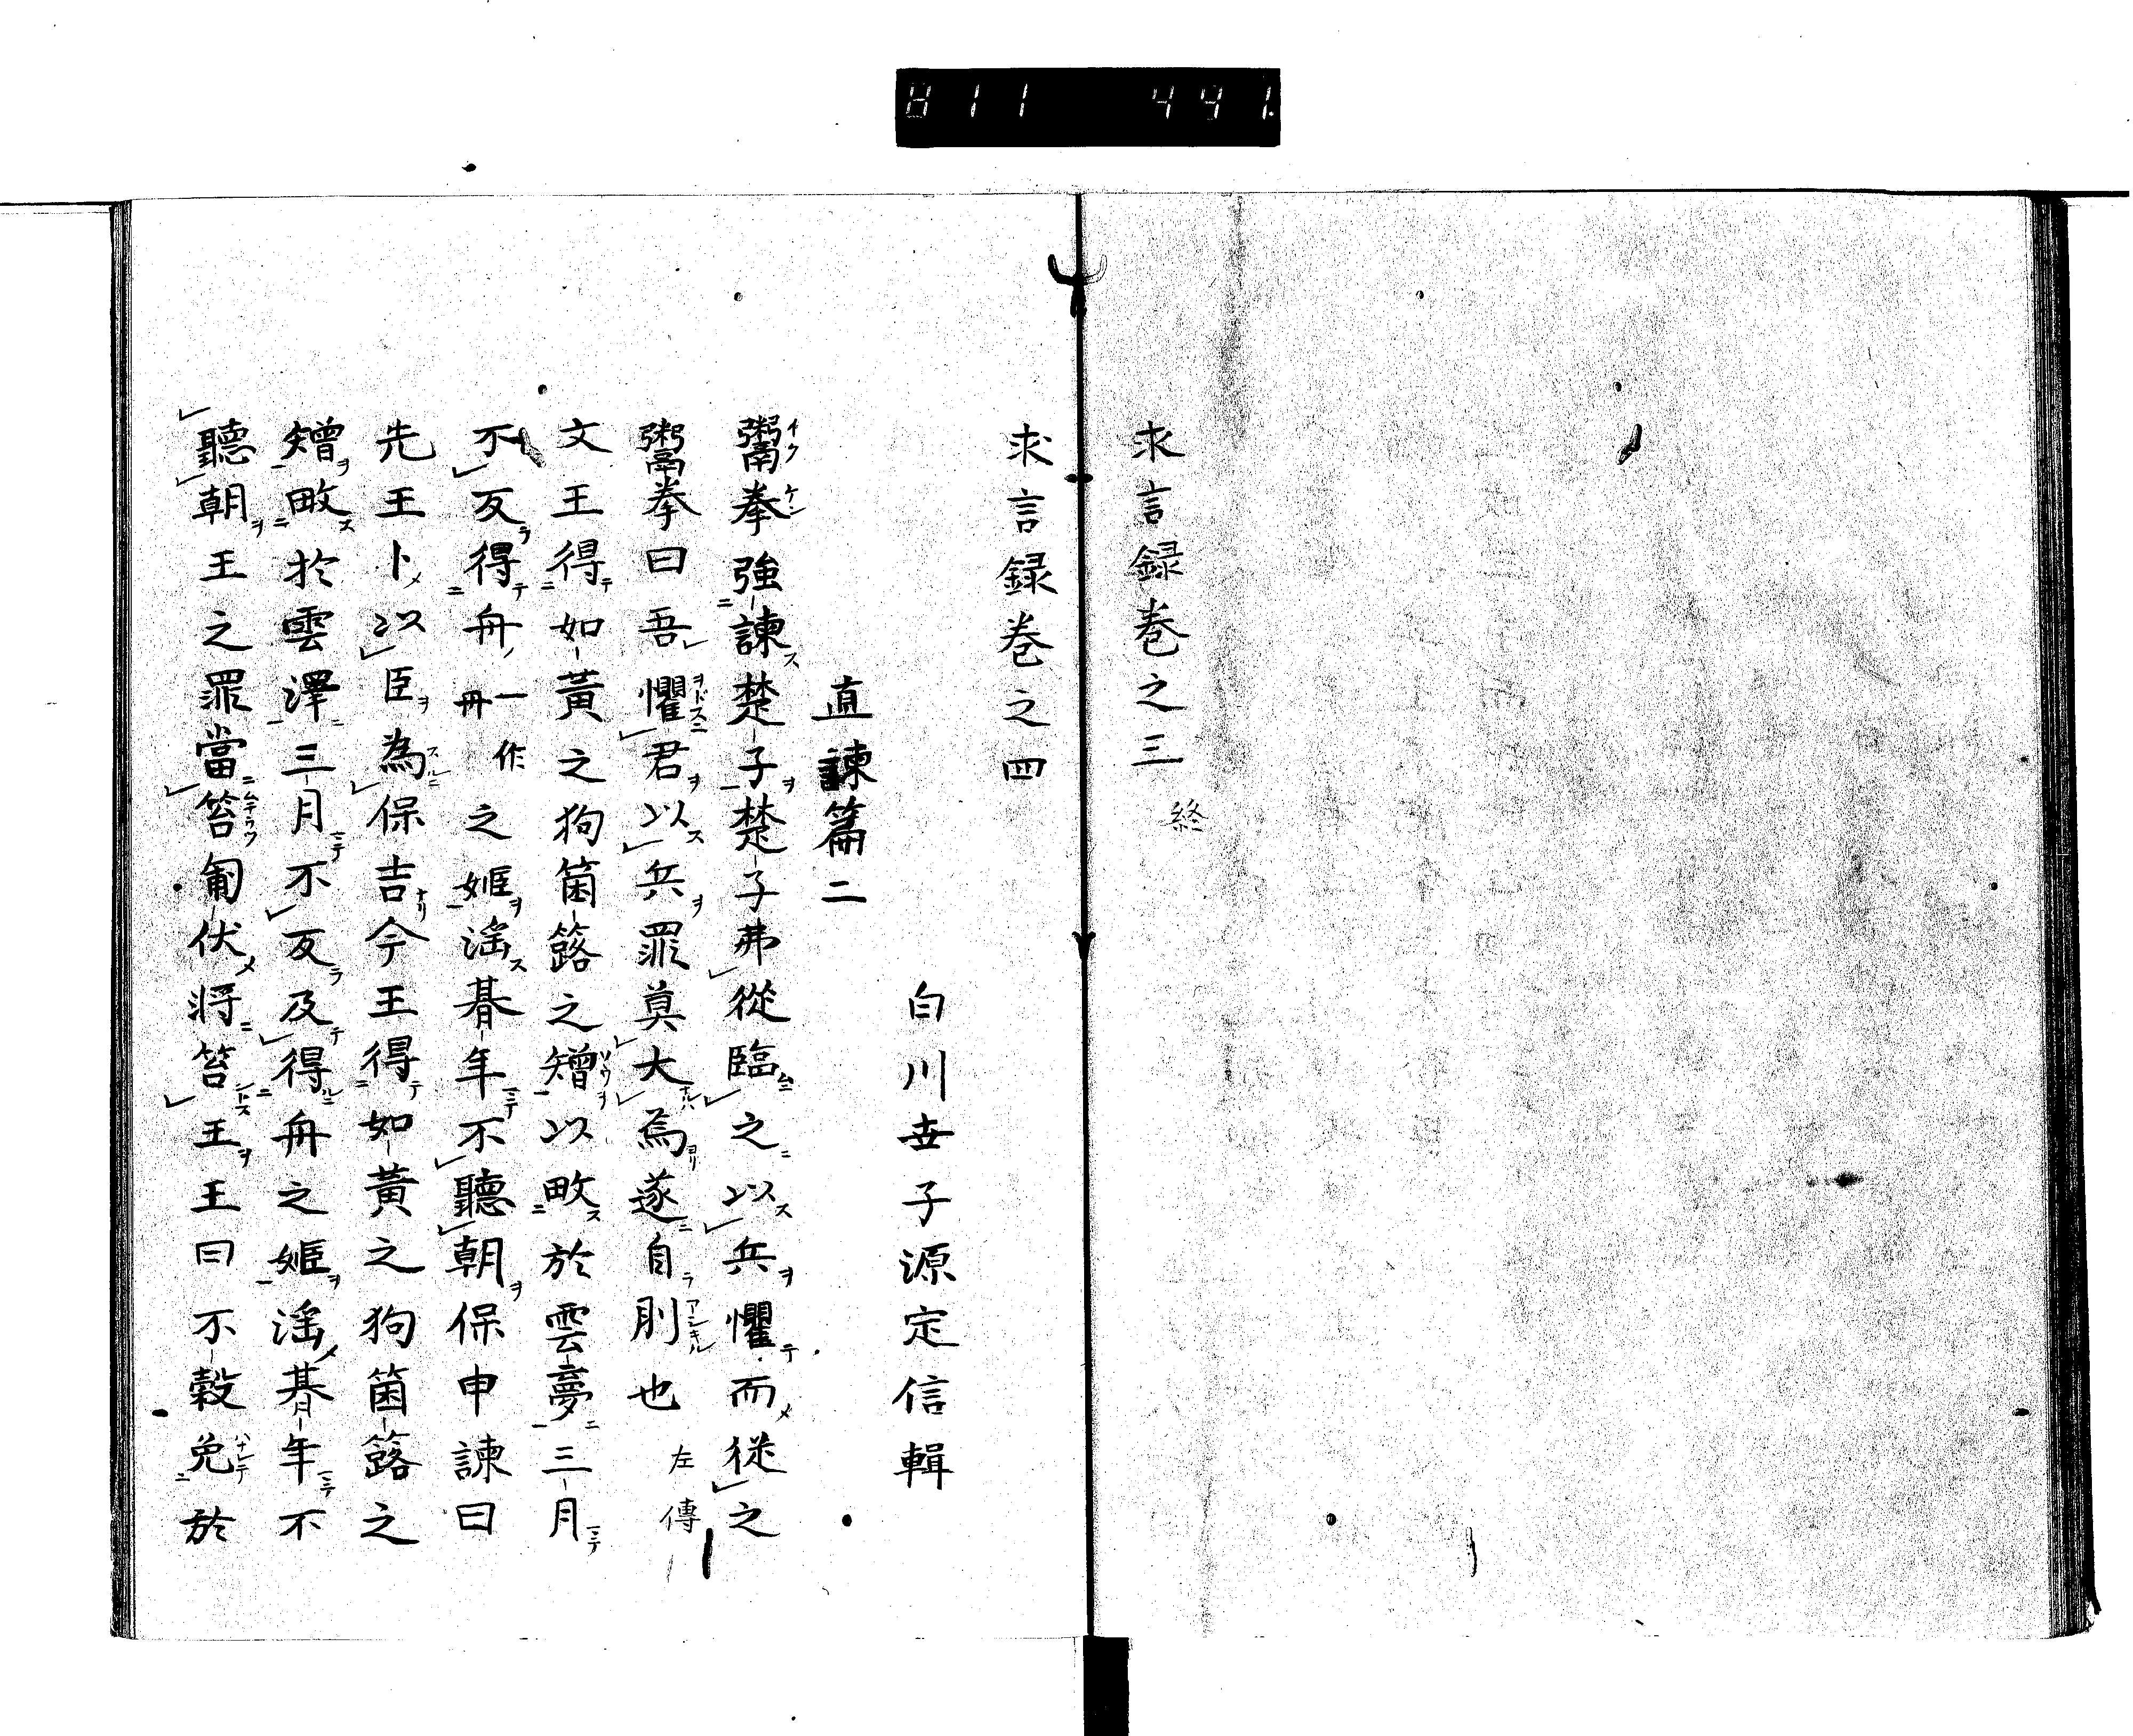 811 441.
求言録巻之三 終
求言録巻之四
白川世子源定信輯
直諫篇二
鬻拳強諫楚子楚子弗從臨之以兵懼而從之
鬻拳曰吾懼君以兵罪莫大焉遂自刖也 左傳
文王得如黃之狗箘簬之矰以畋於雲夢三月
不反得舟 一作丹 之姬淫朞年不聽朝保申諫曰
先王卜以臣為保吉今王得如黃之狗箘簬之
矰畋於雲澤三月不反及得舟之姬淫朞年不
聽朝王之罪當笞匍伏将笞王王曰不穀免於